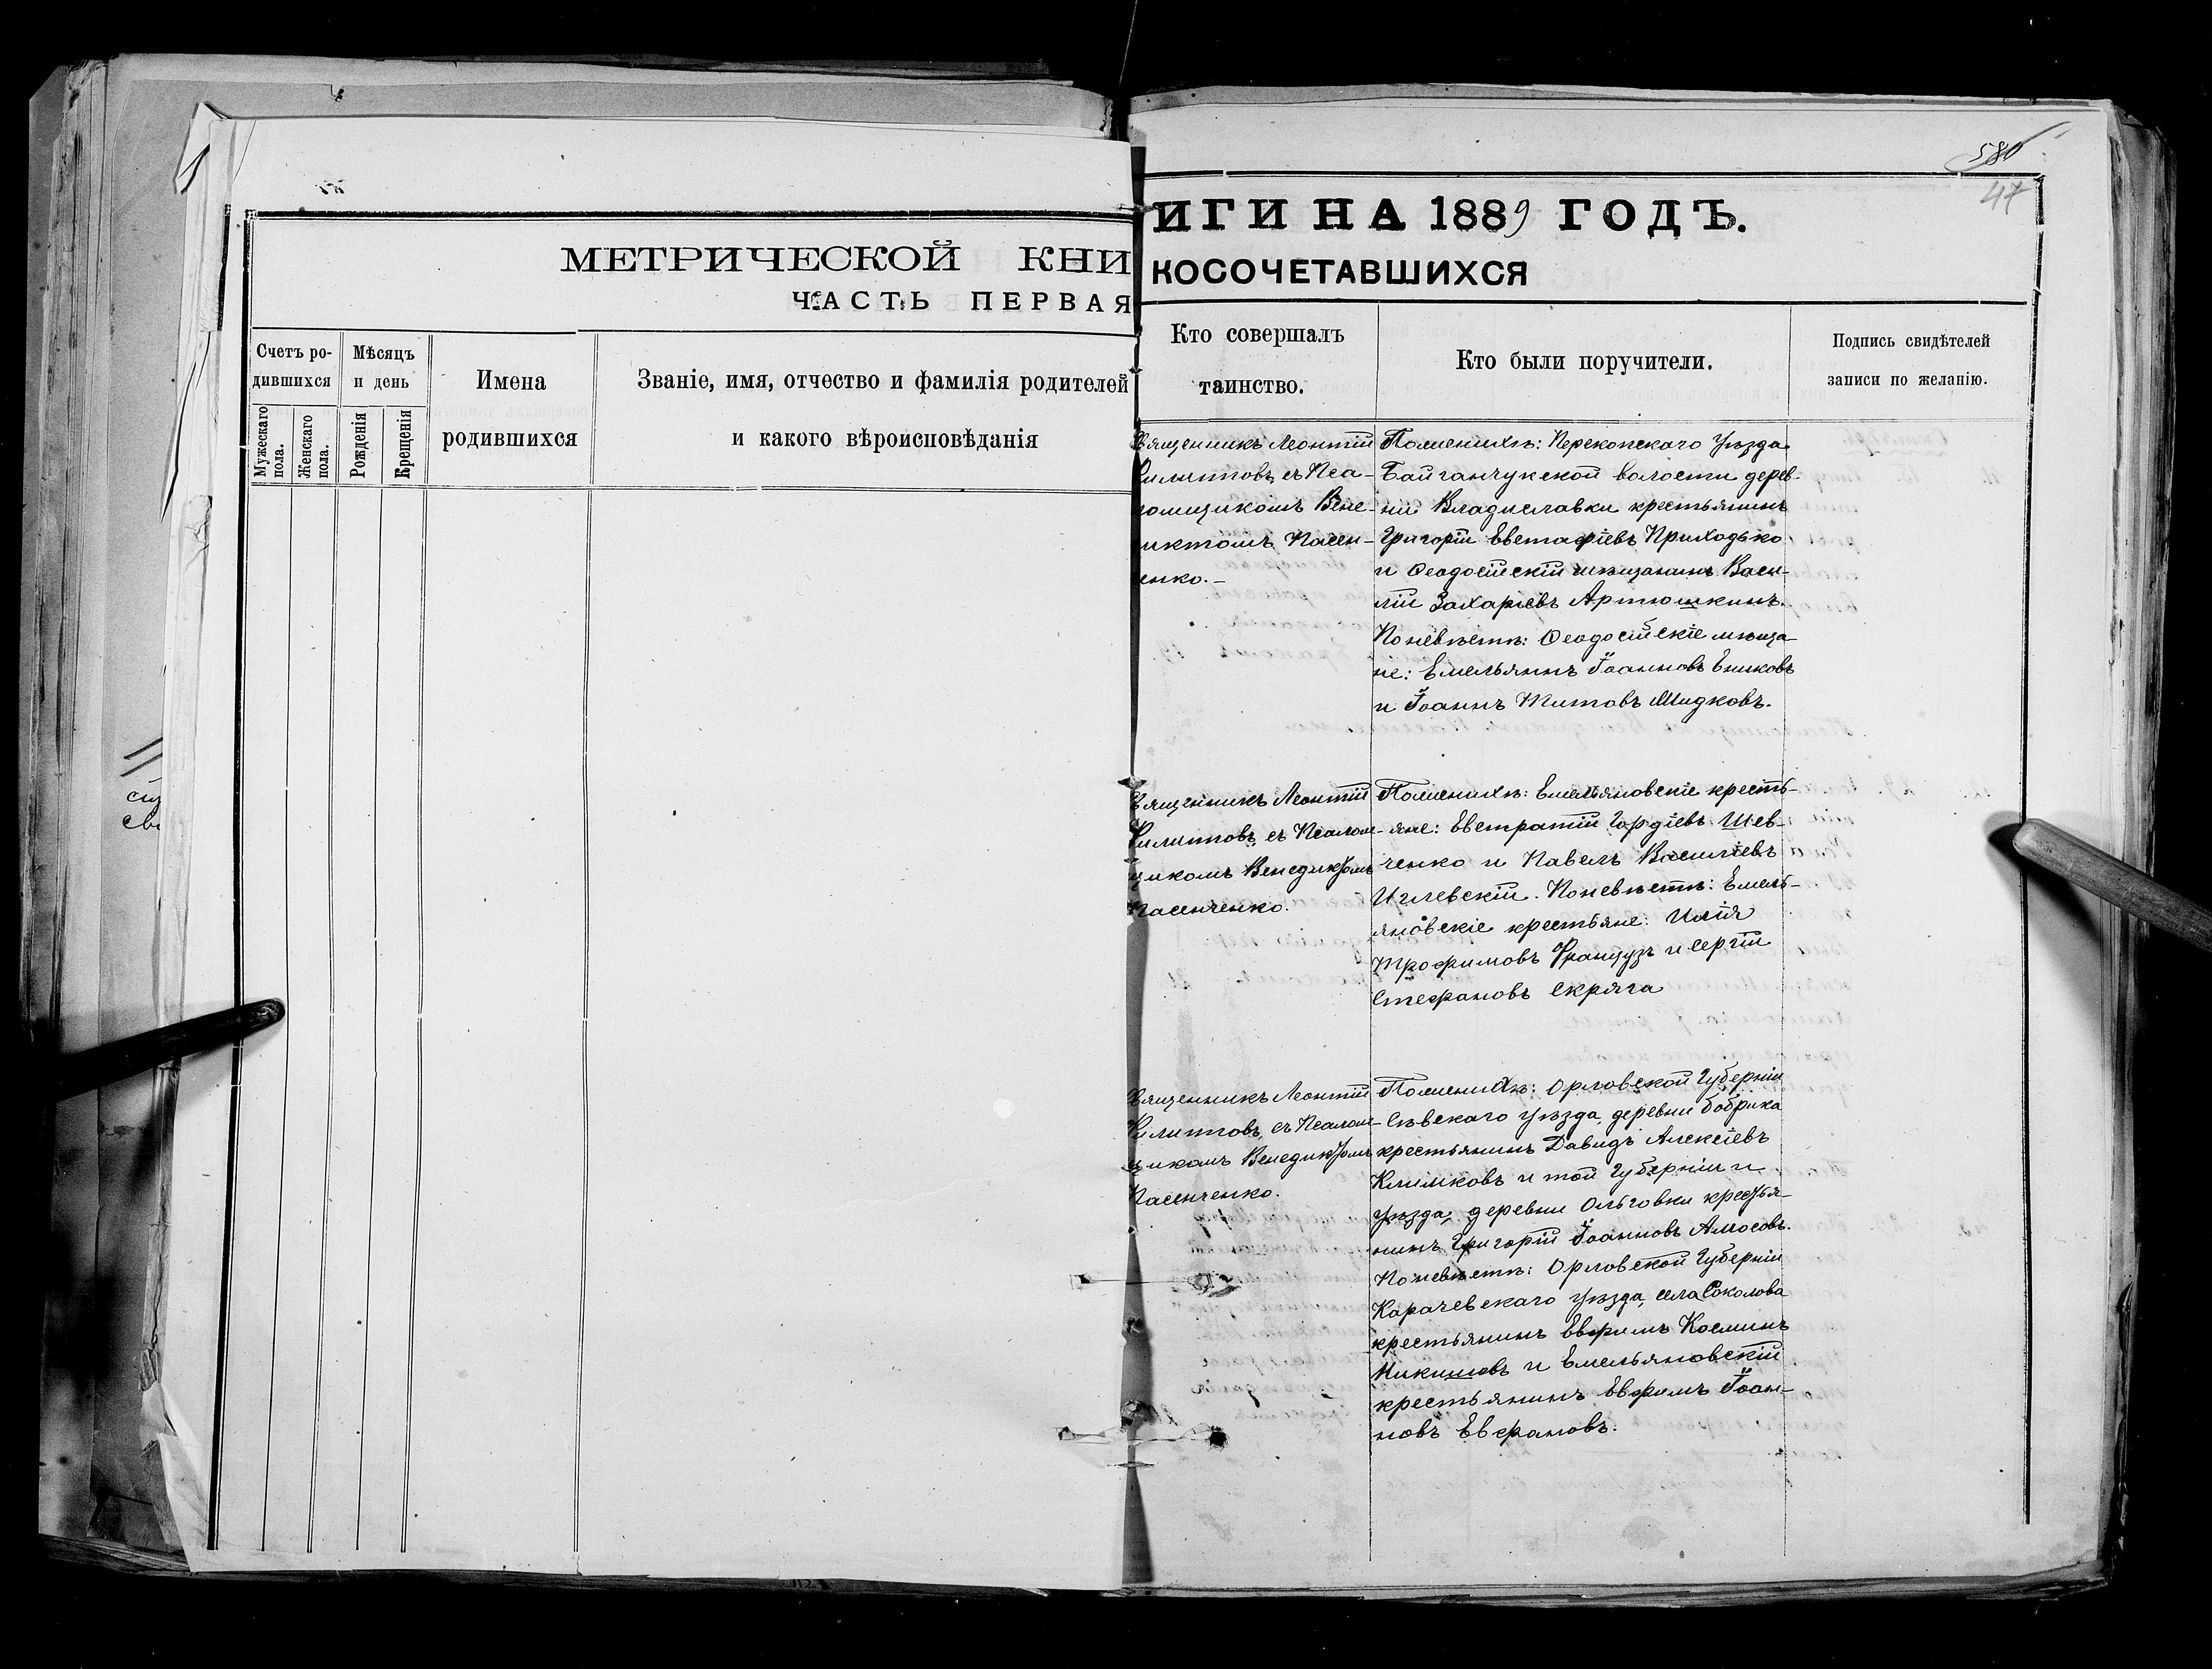 МЕТРИЧЕСКОЙ КНИ
ЧАСТЬ ПЕРВАЯ
Счетъ ро-
дившихся
Мѣсяцъ
и день
Имена
родившихся
Званіе, имя, отчество и фамилія родителей
и какого вѣроисповѣданія
Мужескаго
пола.
Женскаго
пола.
Рожденія
Крещенія
580
47
ИГИ НА 1889 ГОДЪ.
КОСОЧЕТАВШИХСЯ
Кто совершалъ
таинство.
Кто были поручители.
Подпись свидѣтелей
записи по желанію.
вященникъ Леонтій
илиповъ, съ Пса-
омщикомъ Вене-
иктомъ Пасен-
енко.-
По женихѣ: Перекопскаго уѣзда
Байганчукской волости дерев-
ни Владиславки крестьянинъ
Григорій Евстафіевъ Приходько
и Ѳеодосійскій мѣщанинъ Васи-
лій Захаріевъ Артюшкинъ.
По невѣстѣ: Ѳеодосійскіе мѣща-
не: Емельянъ Іоанновъ Ениковъ
и Іоаннъ Титовъ Шидковъ.
вященникъ Леонтій
илиповъ, съ Псалом-
щикомъ Венедиктомъ
Пасенченко.
По женихѣ: Емельяновскіе кресть-
яне: Евстратій Гордіевъ Шев-
ченко и Павелъ Василіевъ
Иглевскій. По невѣстѣ: Емель-
яновскіе крестьяне: Илія
Трофимовъ Французъ и Сергій
Стефановъ Скряга
вященникъ Леонтій
илиповъ, съ Псалом-
щикомъ Венедиктомъ
Пасенченко.
По женихѣ: Орловской Губерніи
Сѣвскаго уѣзда, деревни Бобрика
крестьянинъ Давидъ Алексіевъ
Климковъ и той Губерніи и
уѣзда, деревни Ольговки крестья-
нинъ Григорій Іоанновъ Амосовъ.
По невѣстѣ: Орловской Губерніи
Карачевскаго уѣзда, села Соколова
крестьянинъ Ефримъ Косминъ
Микишовъ и Емельяновскій
крестьянинъ Ефримъ Іоан-
новъ Евфановъ.